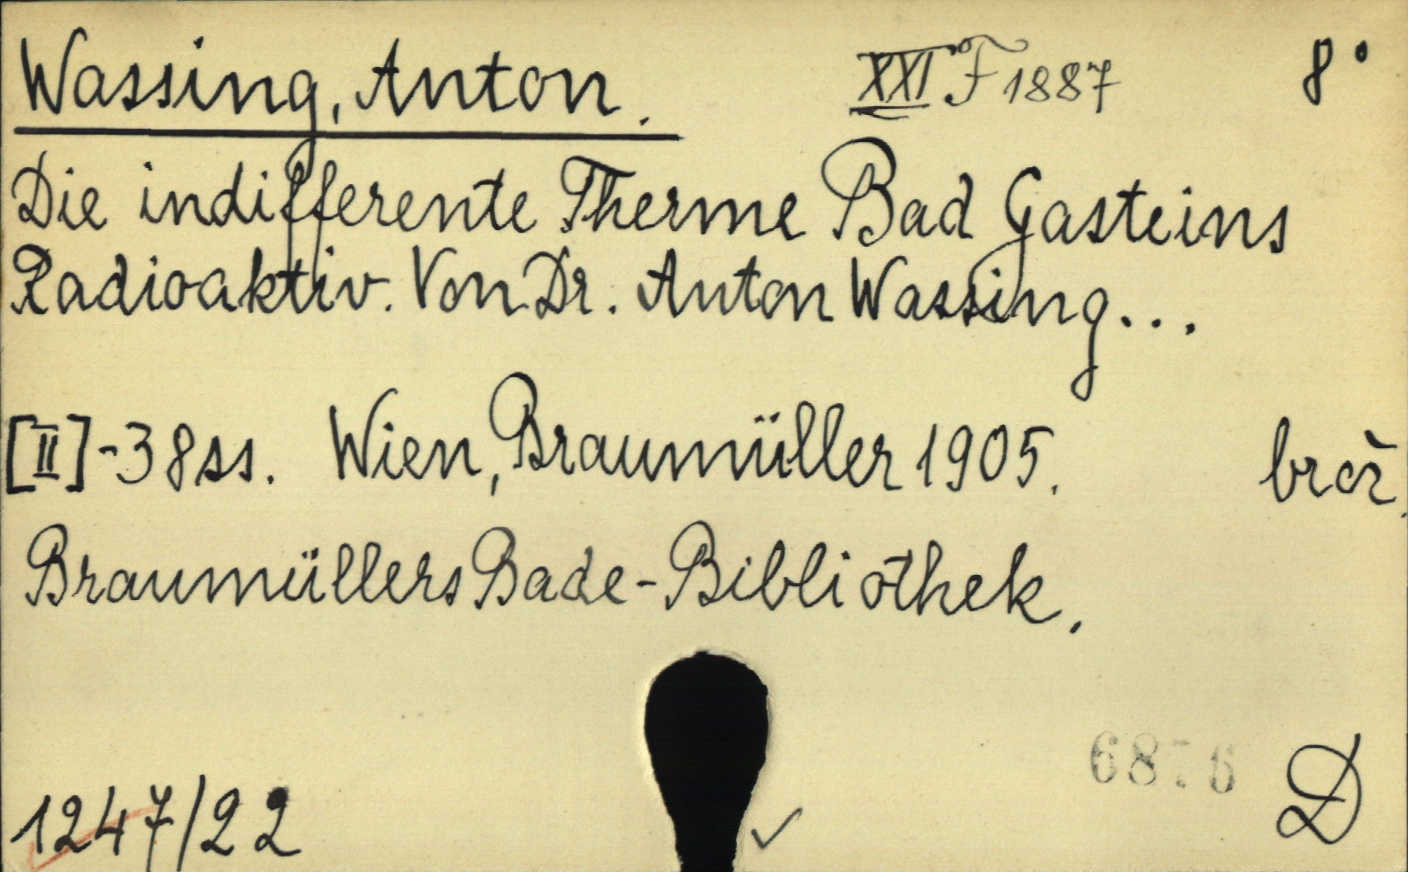 Wassing, Anton. XXI F 1887 8°
Die indifferente Therme Bad Gasteins
Radioaktiv. Von Dr. Anton Wassing...
[II]-38ss. Wien, Braumüller 1905. brož.
Braumüllers Bade-Bibliothek.
D
1247/22